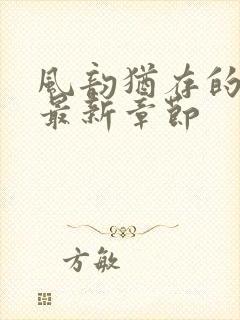 風韵猶存的
最新章節
方敏